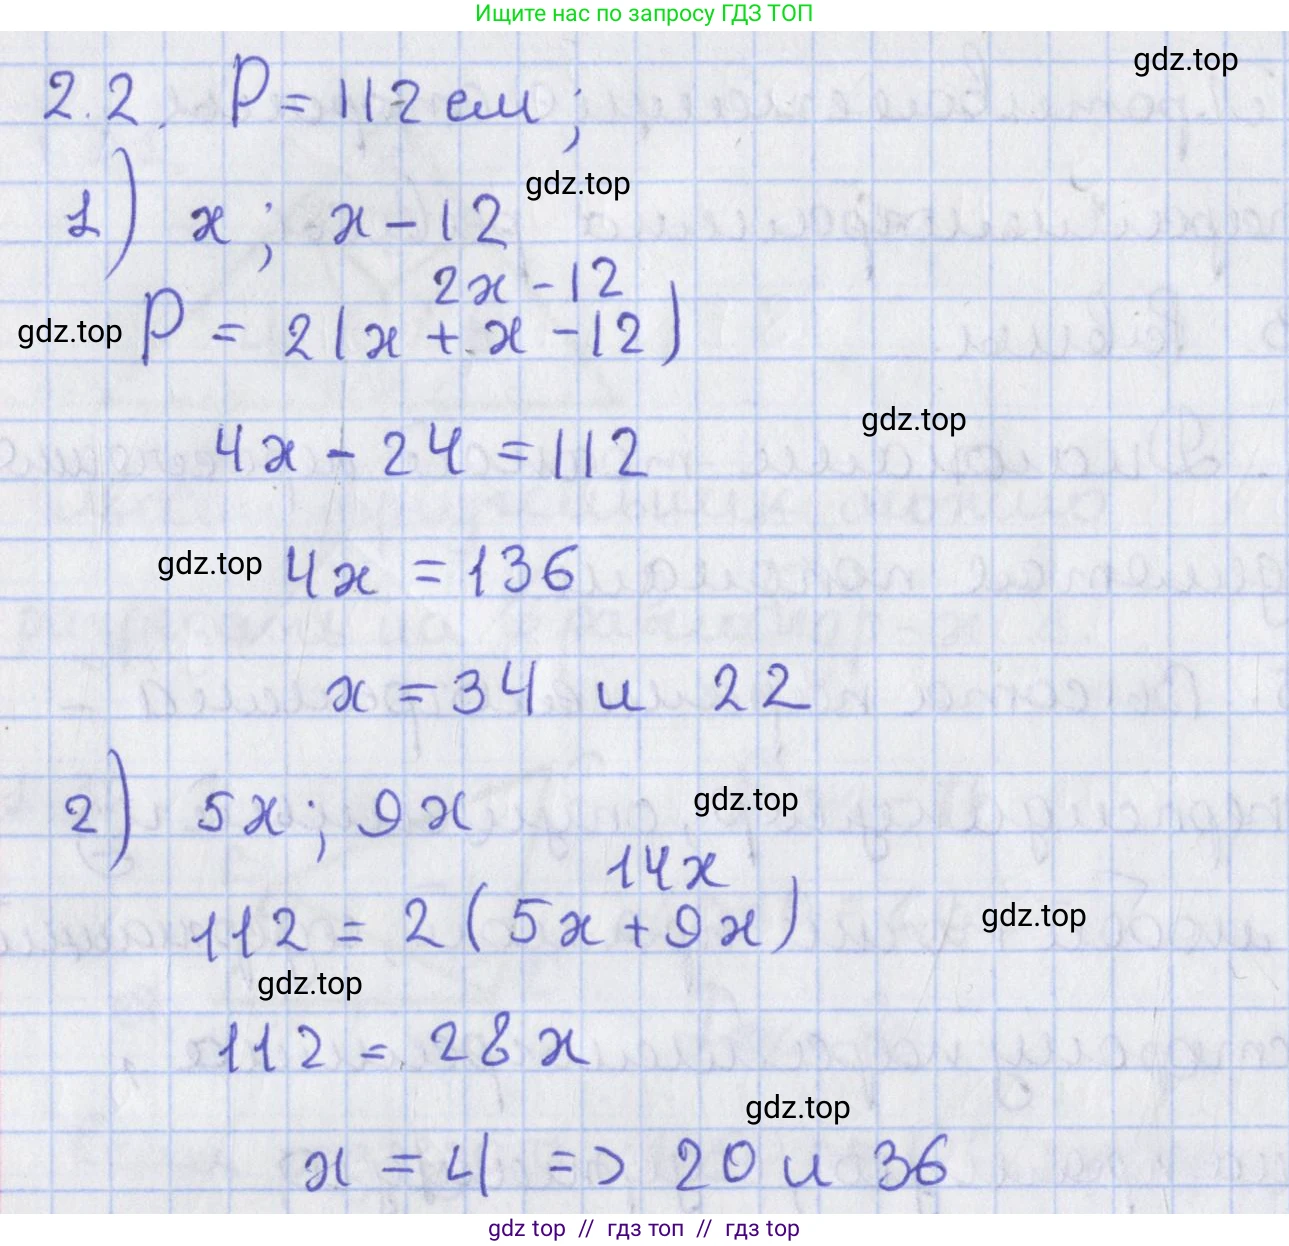 Ищите нас по запросу ГДЗ ТОП
gdz.top
2.2. P = 112 см;
gdz.top
1) x; x - 12
2x - 12
gdz.top P = 2(x + x - 12)
gdz.top
4x - 24 = 112
gdz.top 4x = 136
x = 34 и 22
gdz.top
2) 5x; 9x
14x
112 = 2(5x + 9x)
gdz.top
gdz.top
112 = 28x
gdz.top
x = 4 => 20 и 36
gdz top // гдз топ // гдз top